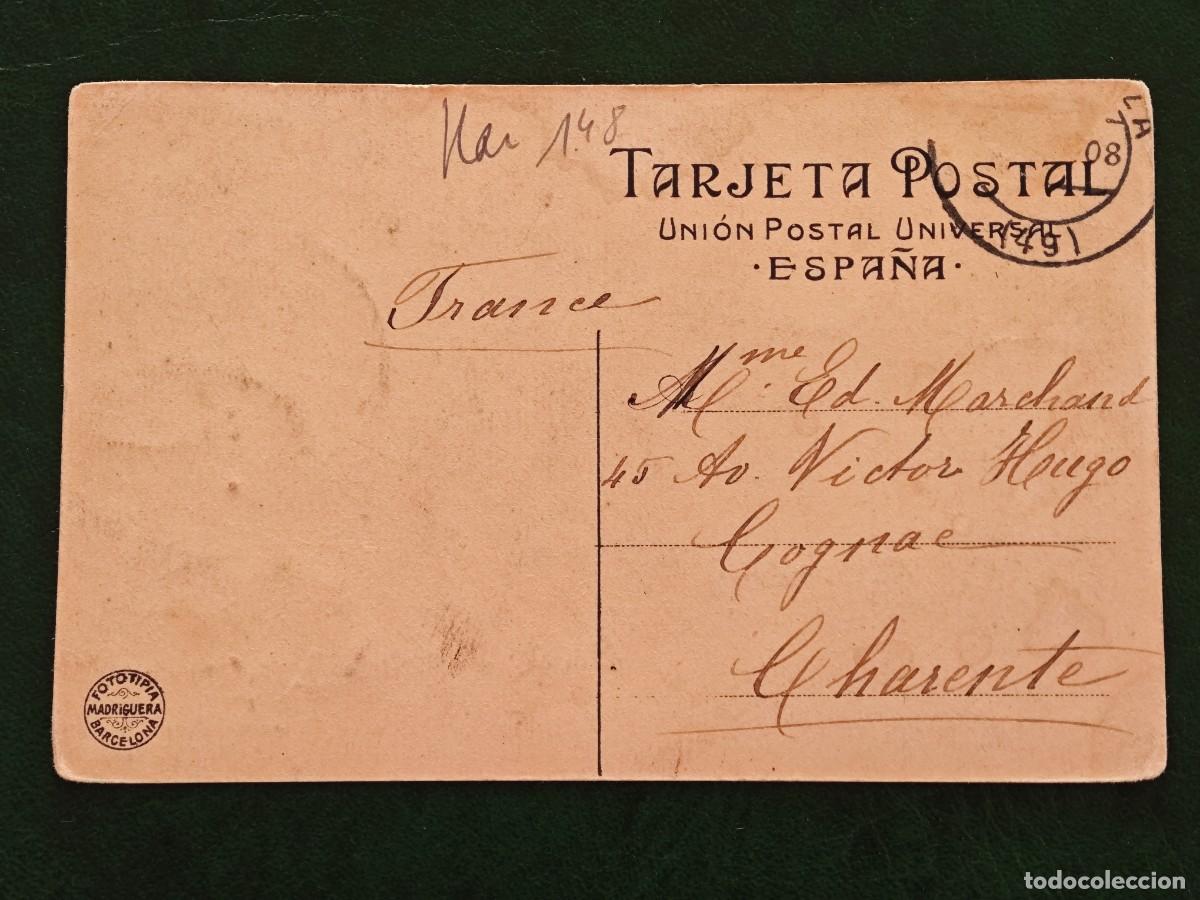 1.48
TARJETA POSTAL
UNIÓN POSTAL UNIVERSAL
·ESPAÑA·
LA
08
(49)
France
Mme Ed. Marchand
45 Av. Victor Hugo
Cognac
Charente
FOTOTIPIA
MADRIGUERA
BARCELONA
todocoleccion